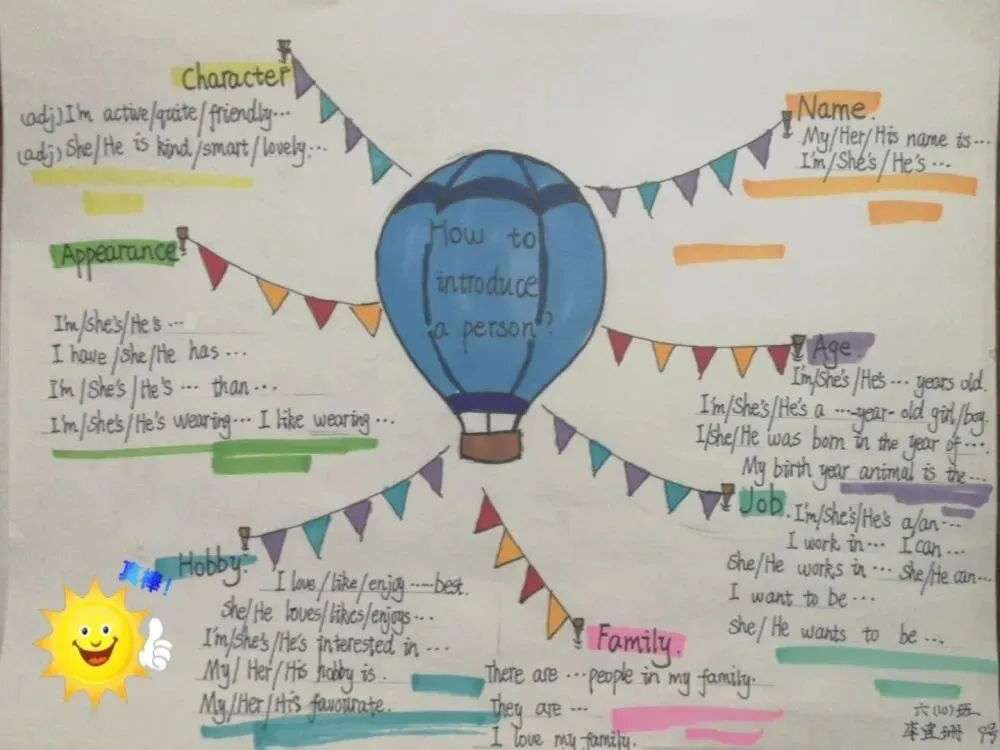 How to
introduce
a person?
Character
(adj) I'm active/quite/friendly...
(adj) She/He is kind/smart/lovely...
Name.
My/Her/His name is...
I'm/She's/He's...
Appearance
I'm/she's/He's...
I have/she/He has...
I'm/She's/He's... than...
I'm/she's/He's wearing... I like wearing...
Age.
I'm/She's/He's... years old.
I'm/She's/He's a ...-year-old girl/boy.
I/she/He was born in the year of...
My birth year animal is the...
Job.
I'm/She's/He's a/an...
I work in... I can...
She/He works in... She/He can...
I want to be...
She/He wants to be...
Hobby:
I love/like/enjoy ......best.
She/He loves/likes/enjoys...
I'm/She's/He's interested in ...
My/Her/His hobby is.
My/Her/His favourate.
Family.
There are ...people in my family.
They are ...
I love my family.
真棒!
六(10)班
9号